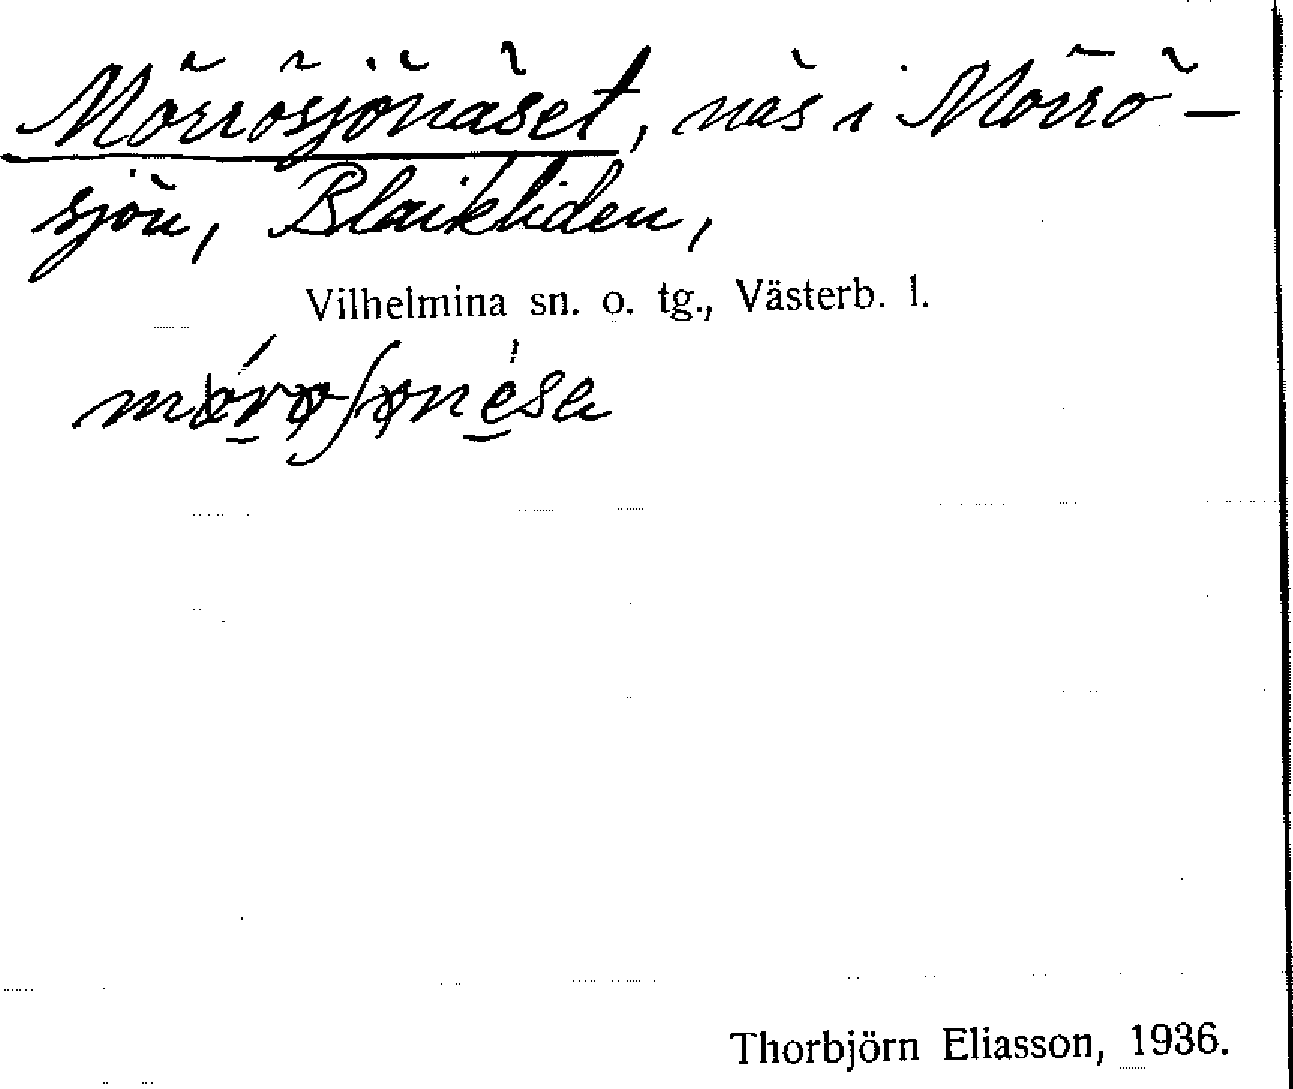 Mörrösjönäset, näs i Mörrö-
sjön, Blaikliden,
Vilhelmina sn. o. tg., Västerb. l.
Thorbjörn Eliasson, 1936.